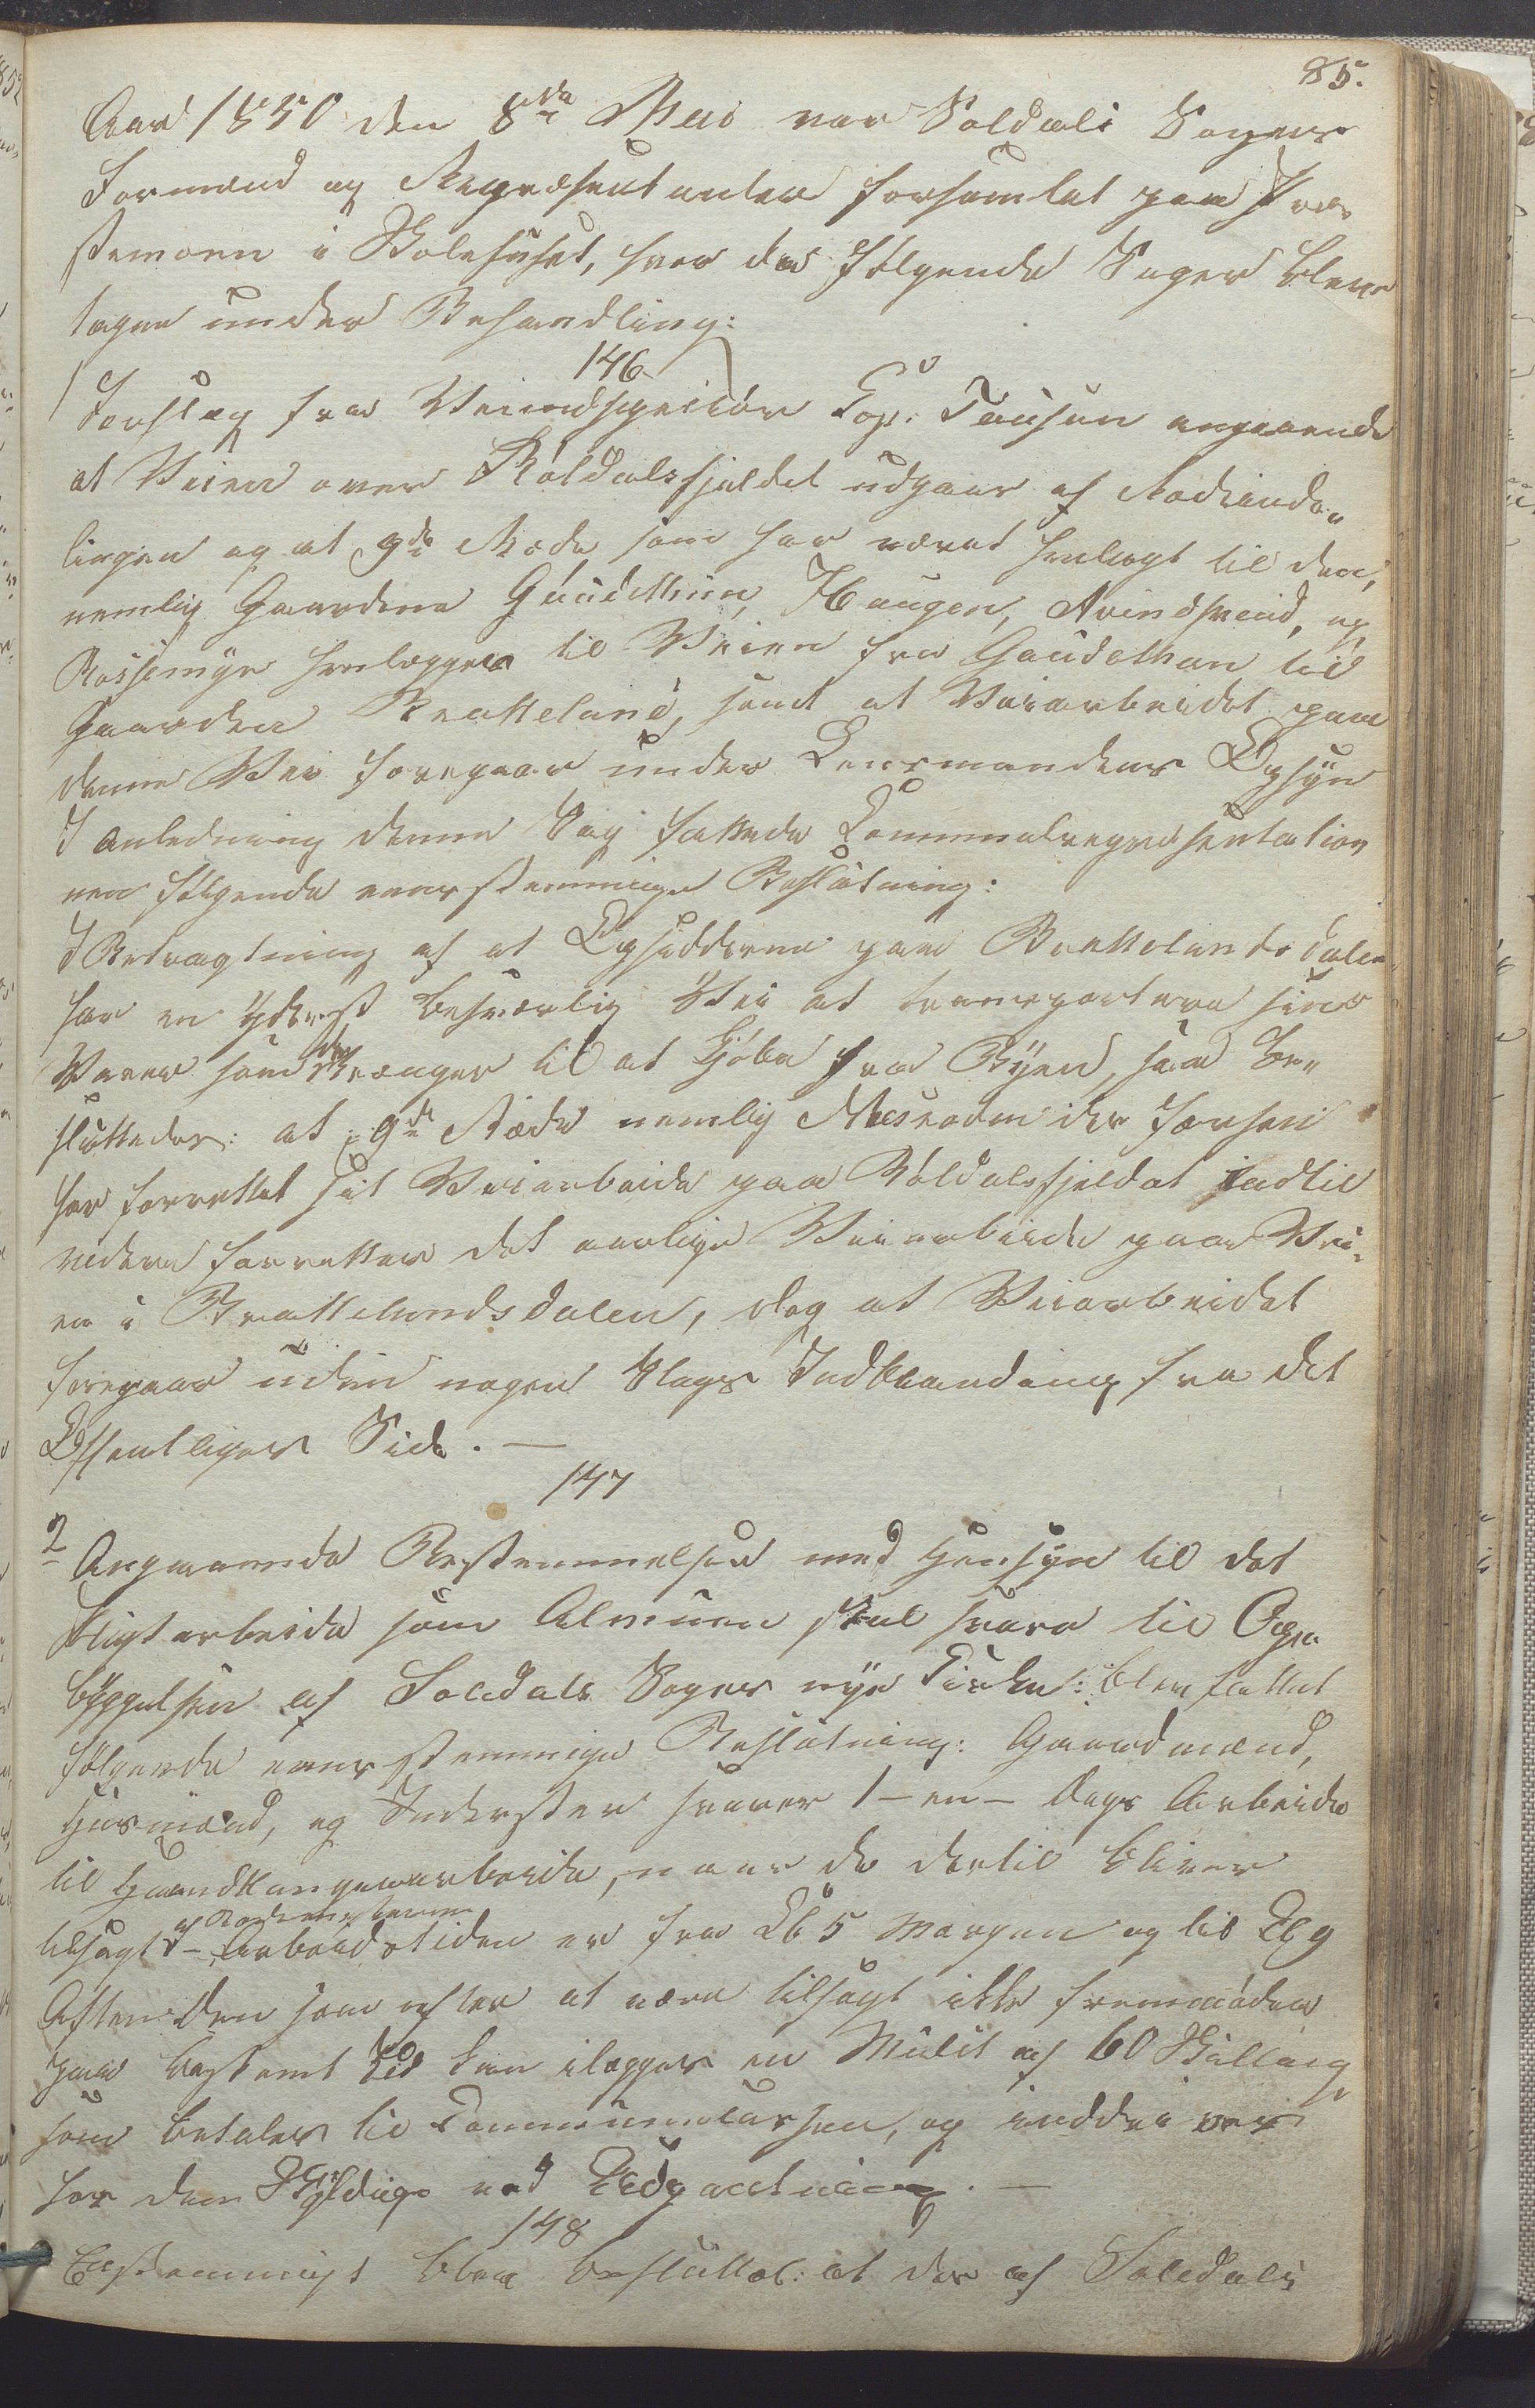 85.
Aar 1850 den 8de Mai var Soldals Sogns
Formænd og Repræsentanter forsamlet paa Præ-
stemoen i Skolehuset, hvor da følgende Sager bleve
tagne under Behandling:
146
1 Forslag fra Veiinspecteur Cap. Tausen angaaende
at Veien over Røldalsfjeldet udgaar af Rodeinde-
lingen og at 9de Rode som har været henlagt til den,
nemlig Gaardene Haugen, og
henlægges til Veien fra til
Gaarden Bratteland, samt at Veiarbeidet paa
denne Vei foregaar under Lensmandens Opsyn
I Anledning denne Sag fattede Communalrepræsentation
nen følgende eenstemmige Beslutning:
I Betragtning af at Opsidderne paa Brattelandsdalen
har en yderst besværlig Vei at transportere sine
Varer som de trænger til at kjøbe fra Byen, saa be-
sluttedes: at 9de Rode nemlig der forhen
har forrettet sit Veiarbeide paa Røldalsfjeldet indtil
videre forretter det aarlige Veiarbeide paa Vei-
en i Brattelandsdalen, dog at Veiarbeidet
foregaar uden nogen Slags Indblanding fra det
Offentliges Side. —
147
2 Angaaende Bestemmelser med Hensyn til det
Pligtarbeide som Almuen skal svare til Op-
byggelsen af Soldals Sogns nye Kirke: blev fattet
følgende eenstemmige Beslutning: Gaardmænd,
Husmænd, og Inderster svarer 1 – en – Dags Arbeide
til Haandlangerarbeide, naar de dertil bliver
af Rodemesteren
tilsagt – Arbeidstiden er fra Kl 5 Morgen og til Kl 9
Aften. Den som efter at være tilsagt ikke fremmøder
paa bestemt Tid kan ilægges en Mulct af 60 Skilling
som betales til Communecassen, og inddrives
hos den Skyldige ved Udpantning. —
148
Enstemmigt blev besluttet: at der af Soldals